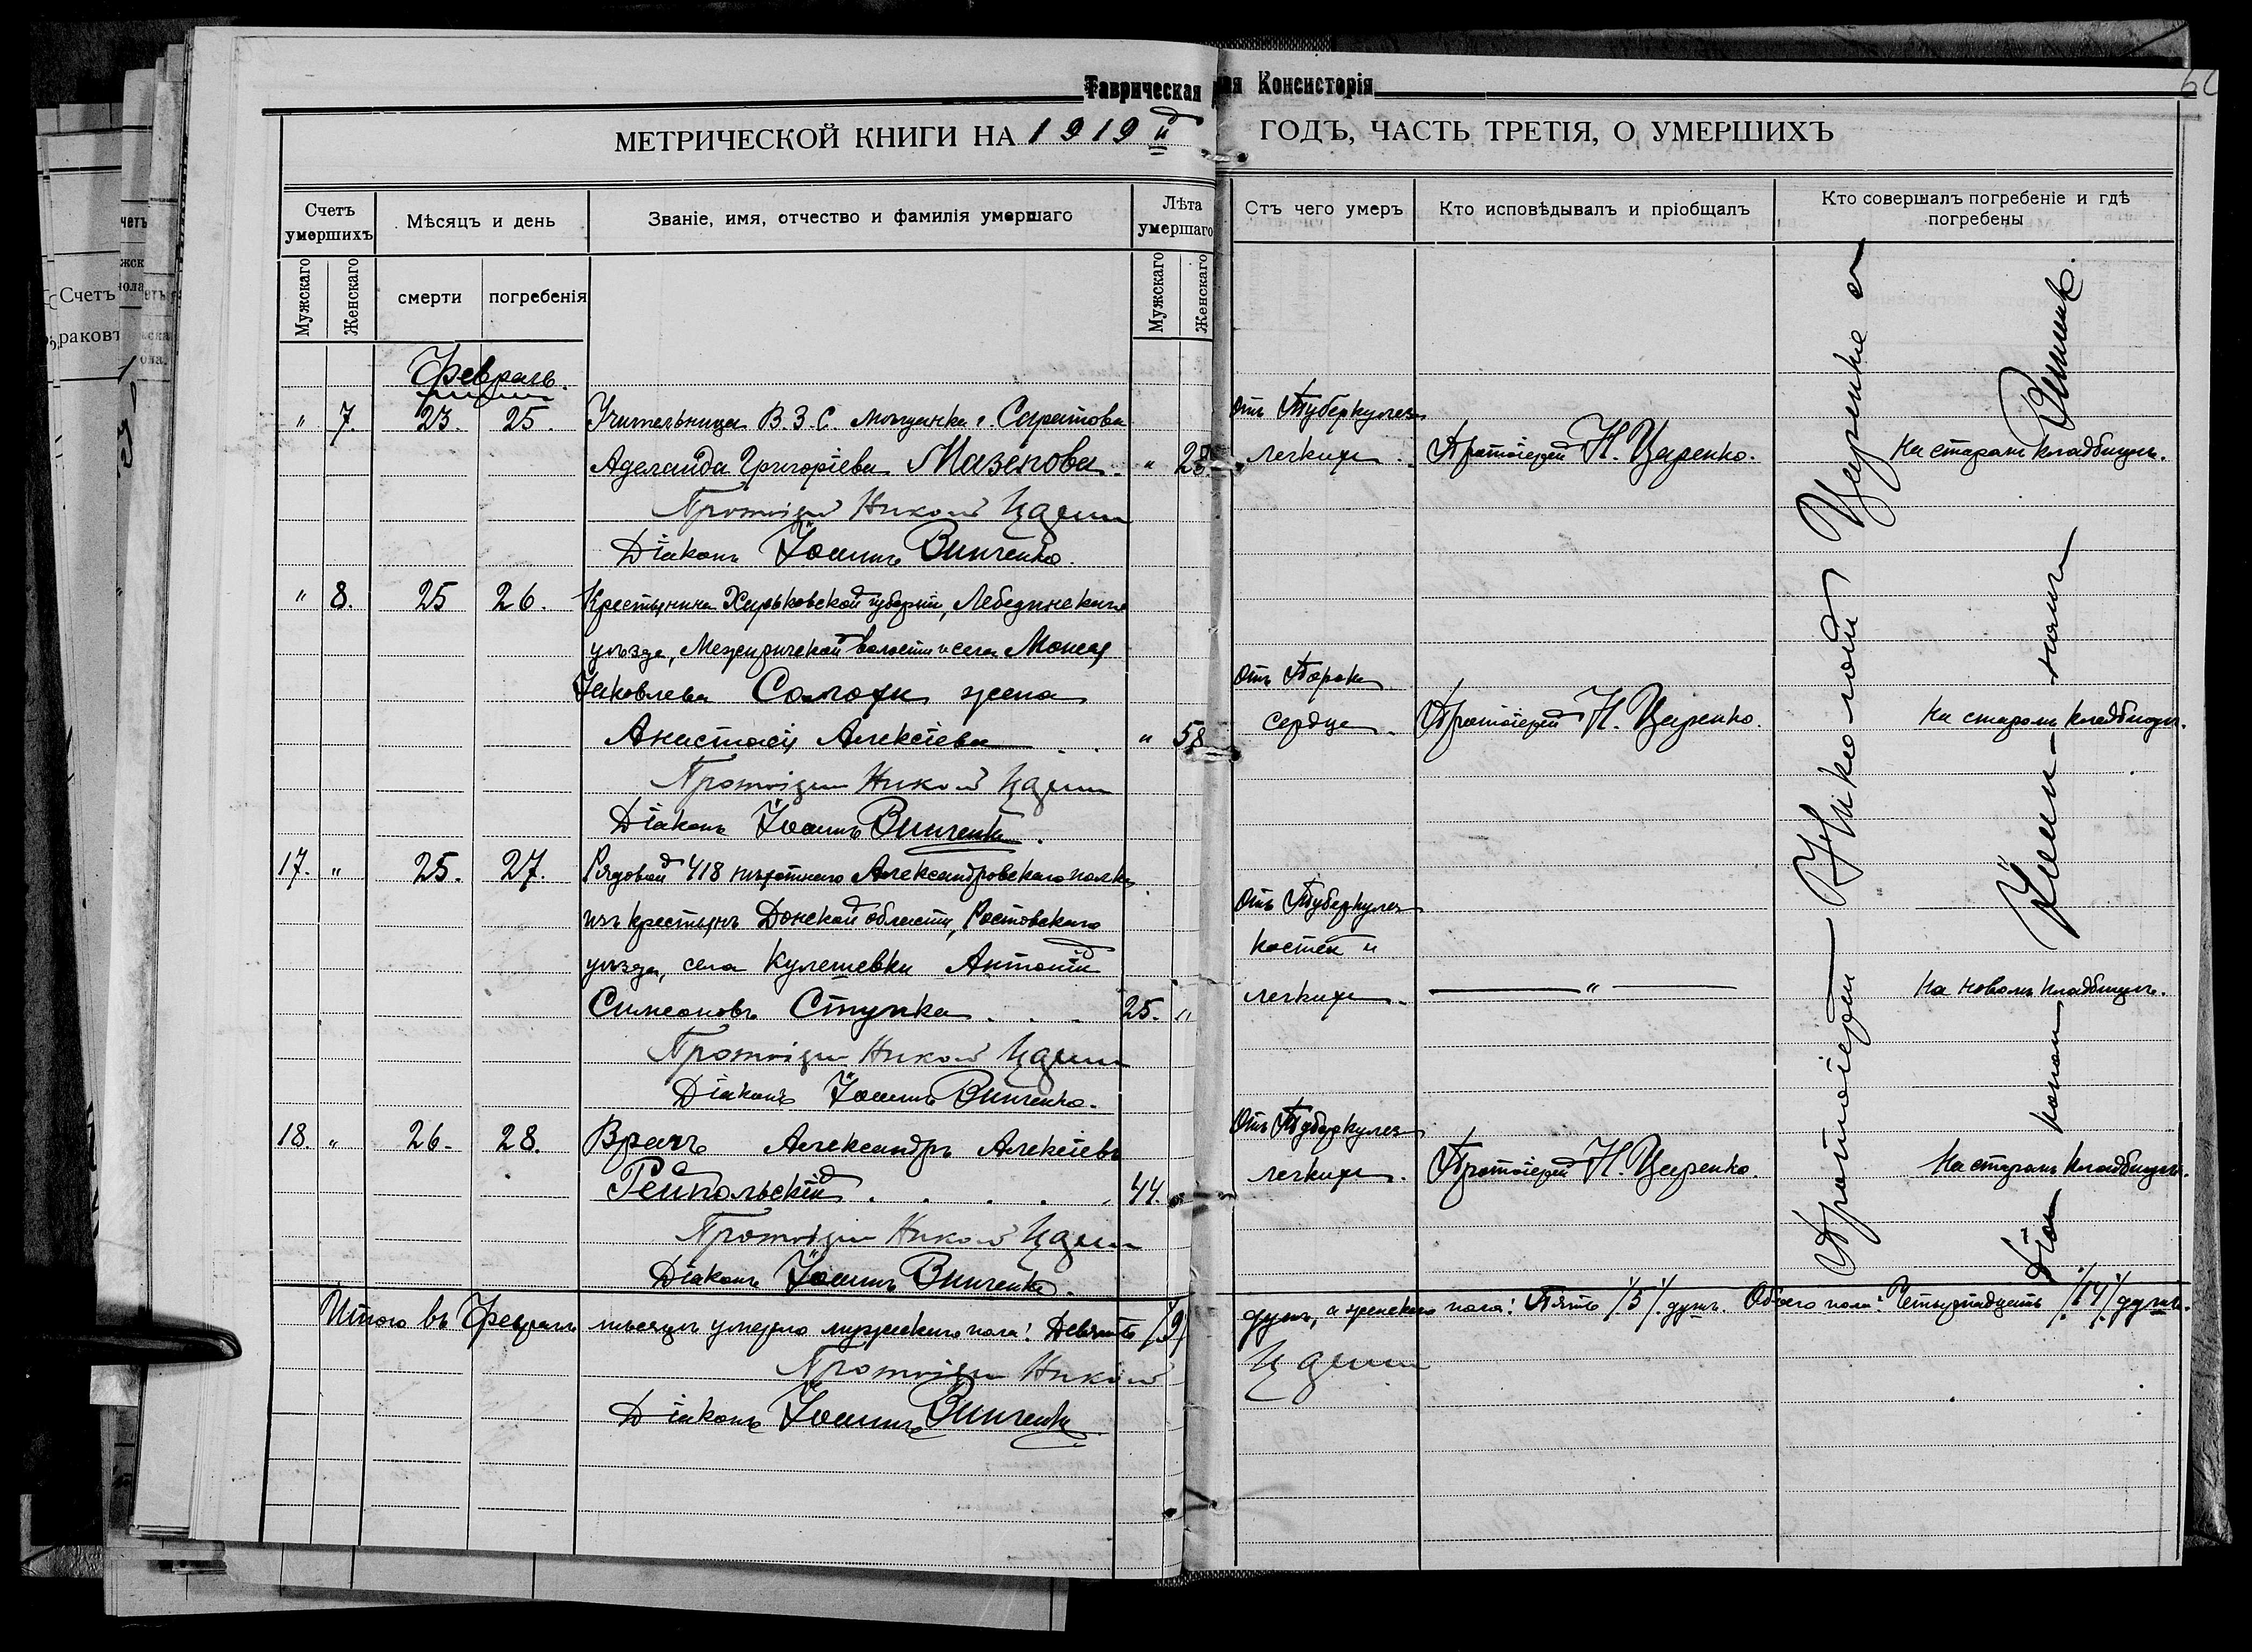 Таврическая ная Консисторія
МЕТРИЧЕСКОЙ КНИГИ НА 1919й ГОДЪ, ЧАСТЬ ТРЕТІЯ, О УМЕРШИХЪ
Счетъ умершихъ
Мѣсяцъ и день
Званіе, имя, отчество и фамилія умершаго
Лѣта умершаго
Отъ чего умеръ
Кто исповѣдывалъ и пріобщалъ
Кто совершалъ погребеніе и гдѣ погребены
Мужскаго
Женскаго
смерти
погребенія
Мужскаго
Женскаго
Февраль.
" 7. 23. 25. Учительница В.З.С. мѣщанка г. Саратова Отъ Туберкулеза
Аделаида Григоріева Мазенова. " 28 легкихъ. Протоіерей Н. Царенко. На старомъ кладбищѣ.
Протоіерей Николай Царенко
Діаконъ Іоаннъ Винченко.
" 8. 25 26. Крестьянина Харьковской губерніи, Лебединскаго
уѣзда, Межиричской волости и села Моисея
Яковлева жена Отъ Порока
Анастасія Алексіева " 58 сердца. Протоіерей Н. Царенко. На старомъ кладбищѣ.
Протоіерей Николай Царенко
Діаконъ Іоаннъ Винченко.
17. " 25. 27. Рядовой 418 пѣхотнаго Александровскаго полка
изъ крестьянъ Донской области, Ростовскаго Отъ Туберкулеза
уѣзда, села Кулешевки Антоній костей и
Симеоновъ Ступка 25. " легкихъ. " На новомъ кладбищѣ.
Протоіерей Николай Царенко
Діаконъ Іоаннъ Винченко.
18. " 26. 28. Врачъ Александръ Алексіевъ Отъ Туберкулеза
Рейпольскій 44. " легкихъ. Протоіерей Н. Царенко. На старомъ кладбищѣ.
Протоіерей Николай Царенко
Діаконъ Іоаннъ Винченко.
Протоіерей Николай Царенко и
Діаконъ Іоаннъ Винченко.
Итого въ Февралѣ мѣсяцѣ умерло мужескаго пола: Девять /9/ душъ, а женскаго пола: Пять /5/ душъ. Обоего пола: Четырнадцать /14/ душъ.
Протоіерей Николай Царенко
Діаконъ Іоаннъ Винченко
Счетъ
раковъ